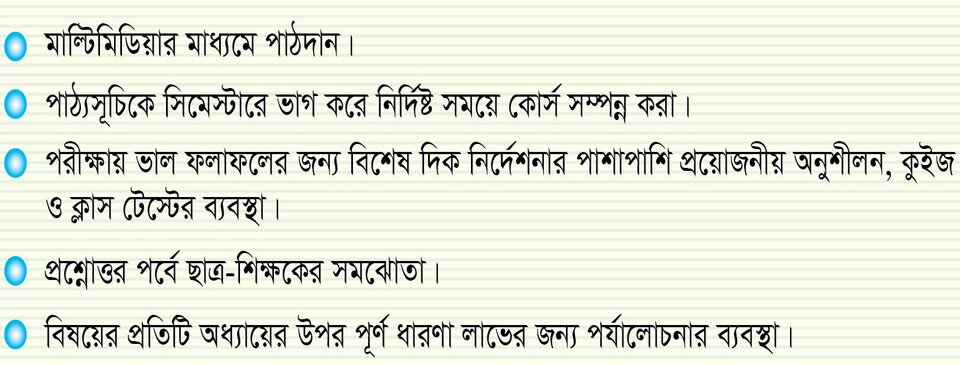 মাল্টিমিডিয়ার মাধ্যমে পাঠদান।
পাঠ্যসূচিকে সিমেস্টারে ভাগ করে নির্দিষ্ট সময়ে কোর্স সম্পন্ন করা।
পরীক্ষায় ভাল ফলাফলের জন্য বিশেষ দিক নির্দেশনার পাশাপাশি প্রয়োজনীয় অনুশীলন, কুইজ
ও ক্লাস টেস্টের ব্যবস্থা।
প্রশ্নোত্তর পর্বে ছাত্র-শিক্ষকের সমঝোতা।
বিষয়ের প্রতিটি অধ্যায়ের উপর পূর্ণ ধারণা লাভের জন্য পর্যালোচনার ব্যবস্থা।